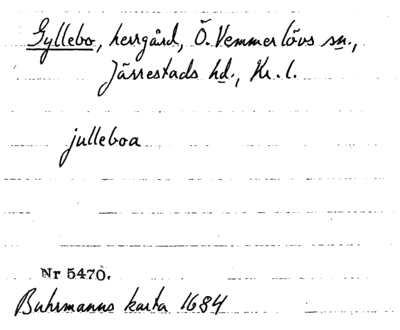 Gyllebo, herrgård, Ö. Vemmerlövs sn.,
Järrestads hd., Kr. l.
julleboa
Nr 5470.
Buhrmanns karta 1684